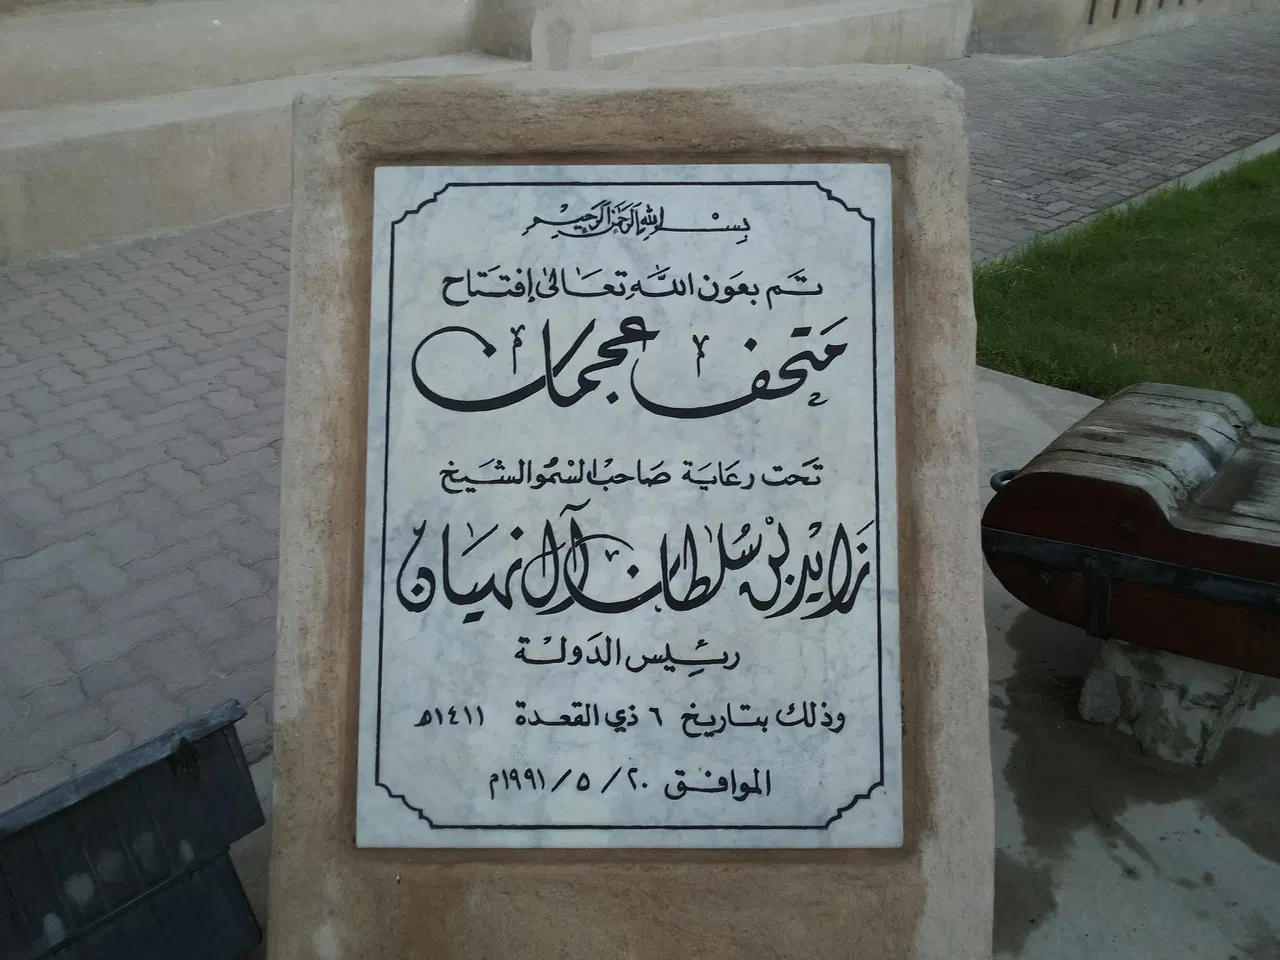 بسم الله الرحمن الرحيم
تَم بعَون اللَّهِ تعَالىٰ إفتتَاح
مَتحف عجمان
تحَت رعَايَة صَاحبْ السْمُو الشيَخ
زَايْد بْن سُلطان آل نهيَان
رئيس الدَولْة
وذلك بتاريخ ٦ ذي القعدة ١٤١١هـ
الموافق ٢٠ / ٥ / ١٩٩١م